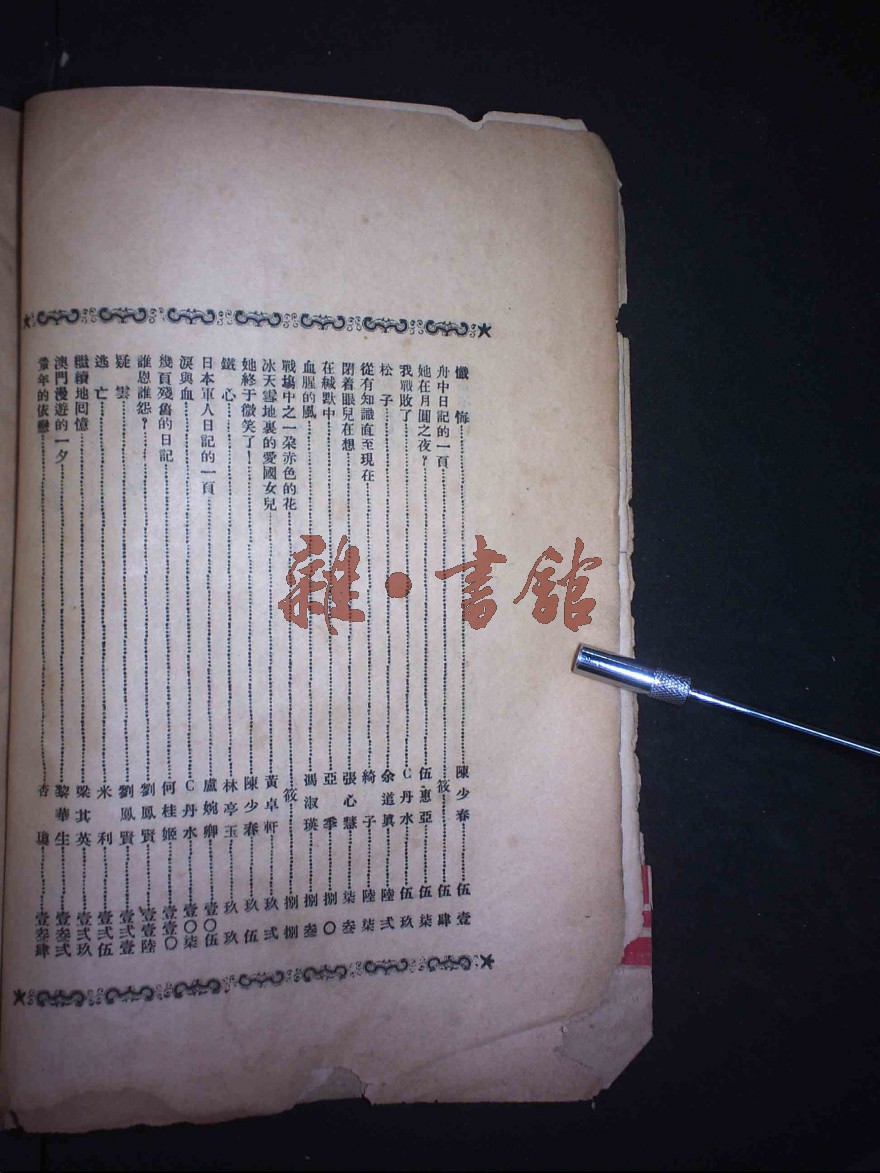 懺悔……陳少春……伍壹
舟中日記的一頁……筱……伍肆
她在月圓之夜?……伍惠亞……伍柒
我戰敗了……C丹水……伍玖
松子……余道眞……陸弍
從有知識直至現在……綺子……陸柒
閉着眼兒在想……張心慧……柒叁
在緘默中……亞季……捌〇
血腥的風……馮淑瑛……捌叁
戰塲中之一朶赤色的花……筱……捌捌
冰天雪地裏的愛國女兒……黃卓軒……玖弍
她終于微笑了!……陳少春……玖伍
鐵心……林亭玉……玖玖
日本軍人日記的一頁……盧婉卿……壹〇伍
淚與血……C丹水……壹〇柒
幾頁殘舊的日記……何桂姬……壹壹〇
誰恩誰怨?……劉鳳賢……壹壹陸
疑雲……劉鳳賢……壹弍壹
逃亡……米利……壹弍伍
繼續地回憶……梁其英……壹弍玖
澳門漫遊的一夕……黎華生……壹叁弍
年的依戀……杏……壹叁肆
雜·書館